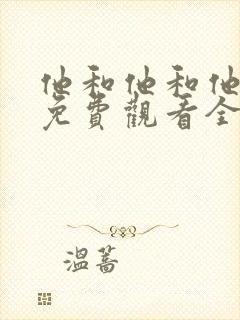 他和他和他
免費觀看全
溫蒿